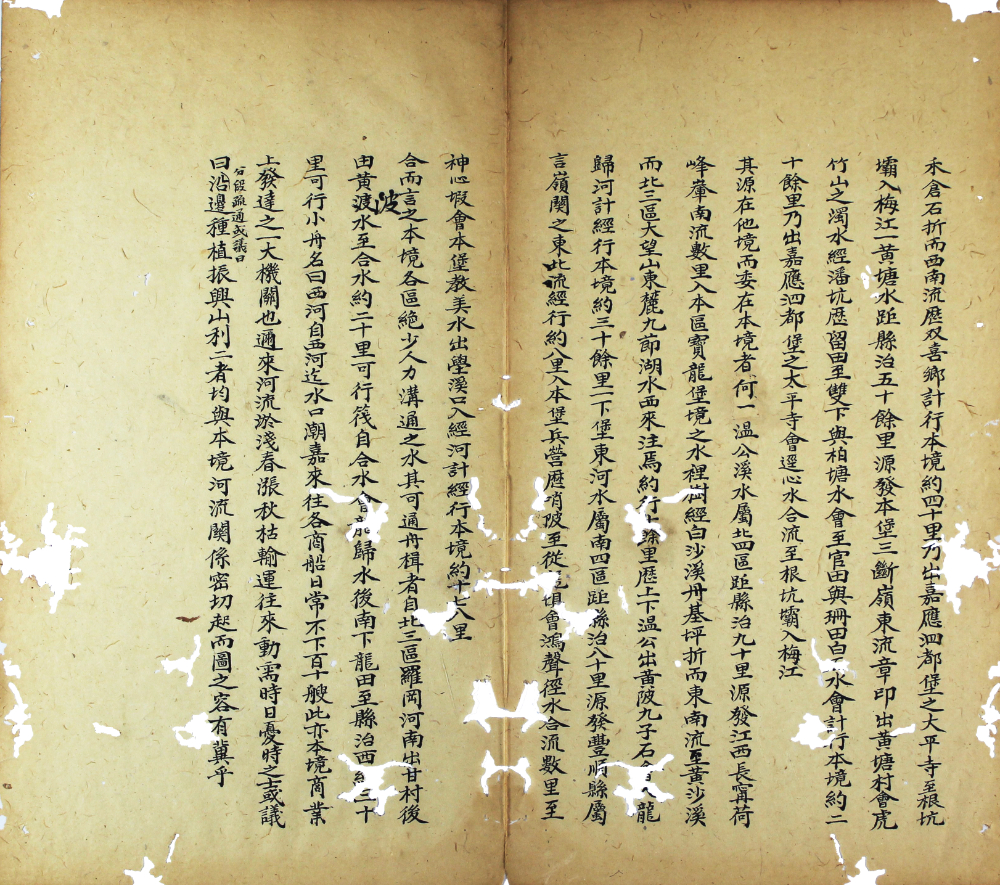 禾倉石折而西南流歷双喜鄉計行本境約四十里乃出嘉應泗都堡之大平寺至根坑
壩入梅江一黃塘水距縣治五十餘里源發本堡三斷嶺東流章印出黃塘村會虎
竹山之濁水經潘坑歷留田至雙下與柏塘水會至官田與珊田白水會計行本境約二
十餘里乃出嘉應泗都堡之太平寺會逕心水合流至根坑壩入梅江
其源在他境而委在本境者何一溫公溪水屬北四區距縣治九十里源發江西長甯荷
峰輋南流數里入本區寶龍堡境之水裡樹經白沙溪丹基坪折而東南流至黃沙溪
而北三區大望山東麓九節湖水西來注焉約行餘里歷上下溫公出黃陂九子石龍
歸河計經行本境約三十餘里一下堡東河水屬南四區距縣治八十里源發豐順縣屬
言嶺關之東北流經行約八里入本堡兵營歷哨陂至從塤會鴻聲徑水合流數里至
神心嘏會本堡教美水出學溪口入經河計經行本境約十七八里
合而言之本境各區絶少人力溝通之水其可通舟楫者自北三區羅岡河南出甘村後
由黃渡波水至合水約二十里可行筏自合水會龍歸水後南下龍田至縣治西約三十
里可行小舟名曰西河自西河迄水口潮嘉來往各商船日常不下百十艘此亦本境商業
上發達之一大機關也邇來河流淤淺春漲秋枯輸運往來動需時日憂時之士或議
分段疏通或議曰
曰沿邊種植振興山利二者均與本境河流關係密切起而圖之容有冀乎